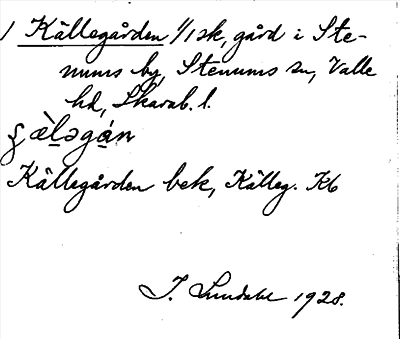 1 Källegården 1/1 sk, gård i Ste-
nums by, Stenums sn, Valle
hd, Skarab. l.
ʂæ̀l̠əgá̠n
Källegården bek, Källeg. Kb
J. Lundahl 1928.